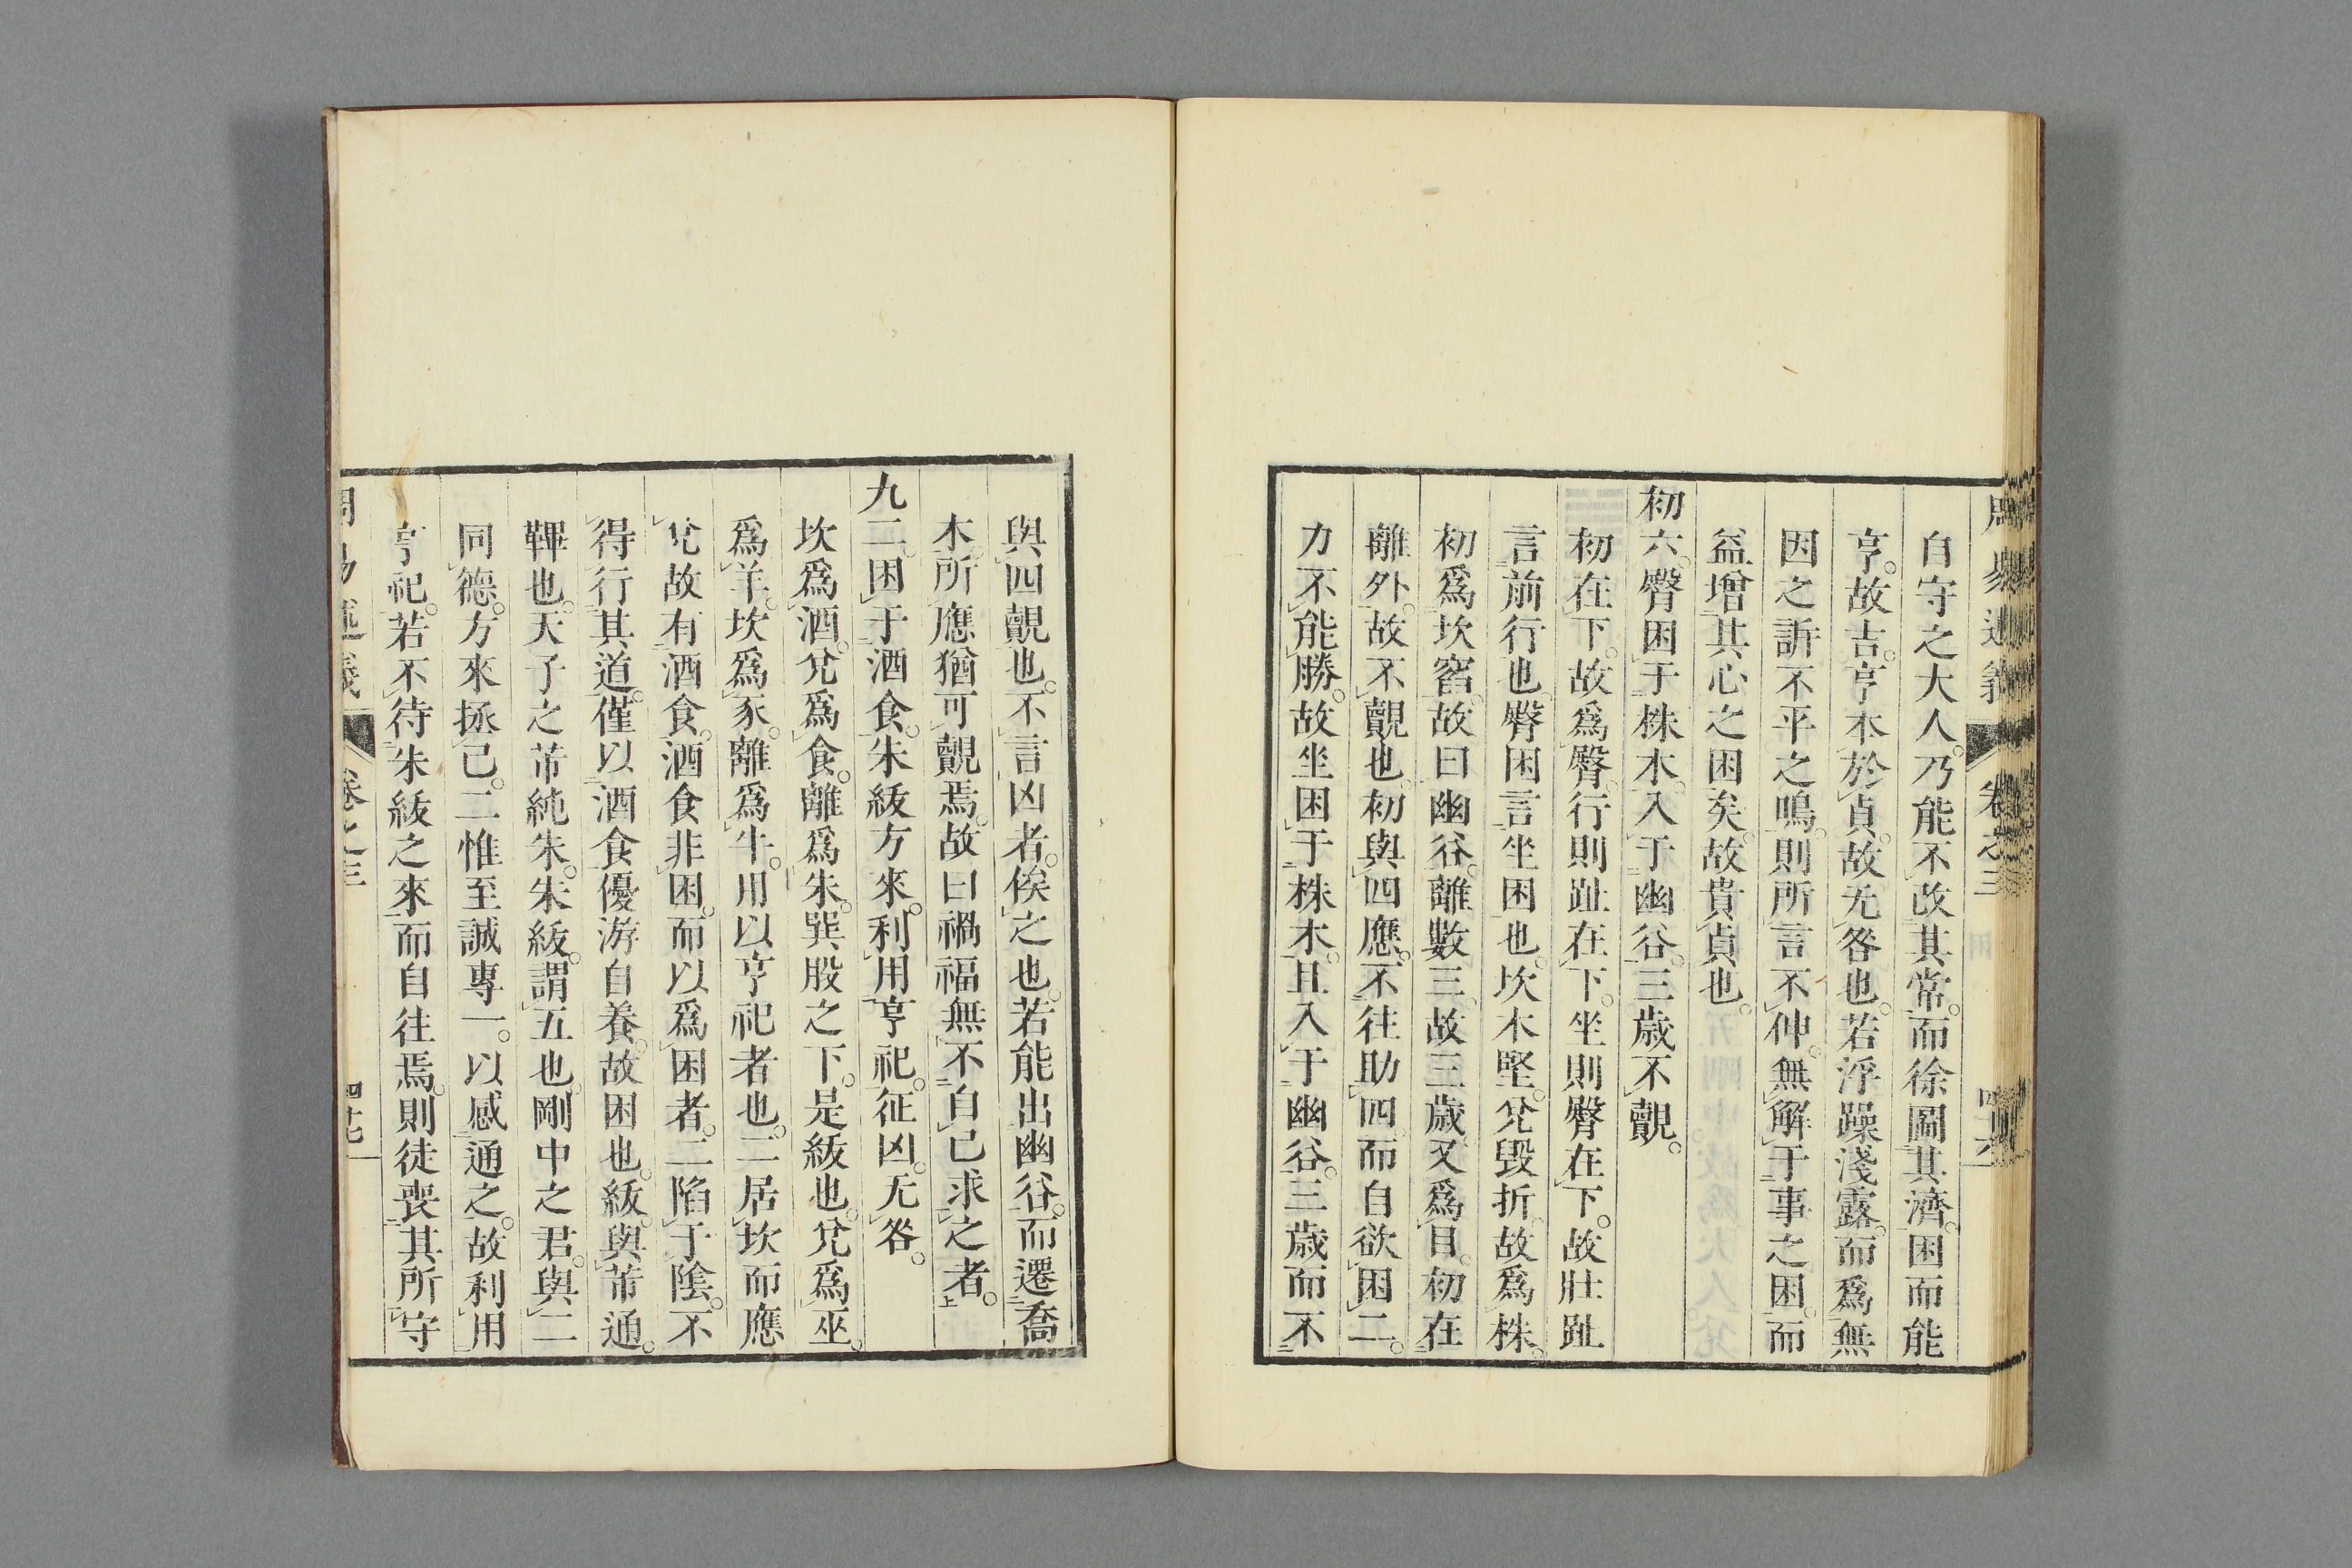 自守之大人。乃能不改其常。而徐圖其濟。困而能
亨。故吉。亨本於貞。故无咎也。若浮躁淺露。而爲無
因之訴不平之鳴。則所言不伸。無解于事之困。而
益增其心之困矣。故貴貞也。
初六。臀困于株木。入于幽谷。三歲不覿。
初在下。故爲臀。行則趾在下。坐則臀在下。故壯趾
言前行也。臀困言坐困也。坎木堅。兌毀折。故爲株。
初爲坎窞。故曰幽谷。離數三。故三歲。又爲目。初在
離外。故不覿也。初與四應。不往助四。而自欲困二。
力不能勝。故坐困于株木。且入于幽谷。三歲而不
與四覿也。不言凶者。俟之也。若能出幽谷。而遷喬
木。所應猶可覿焉。故曰禍福無不自己求之者。
九二。困于酒食。朱紱方來。利用亨祀。征凶。无咎。
坎爲酒。兌爲食。離爲朱。巽股之下。是紱也。兌爲巫。
爲羊。坎爲豕。離爲牛。用以亨祀者也。二居坎而應
兌故有酒食。酒食非困。而以爲困者。二陷于陰。不
得行其道。僅以酒食優游自養。故困也。紱。與芾通。
鞸也。天子之芾純朱。朱紱。謂五也。剛中之君。與二
同德。方來拯己。二惟至誠專一。以感通之。故利用
亨祀。若不待朱紱之來。而自往焉。則徒喪其所守
卷之三
四十七